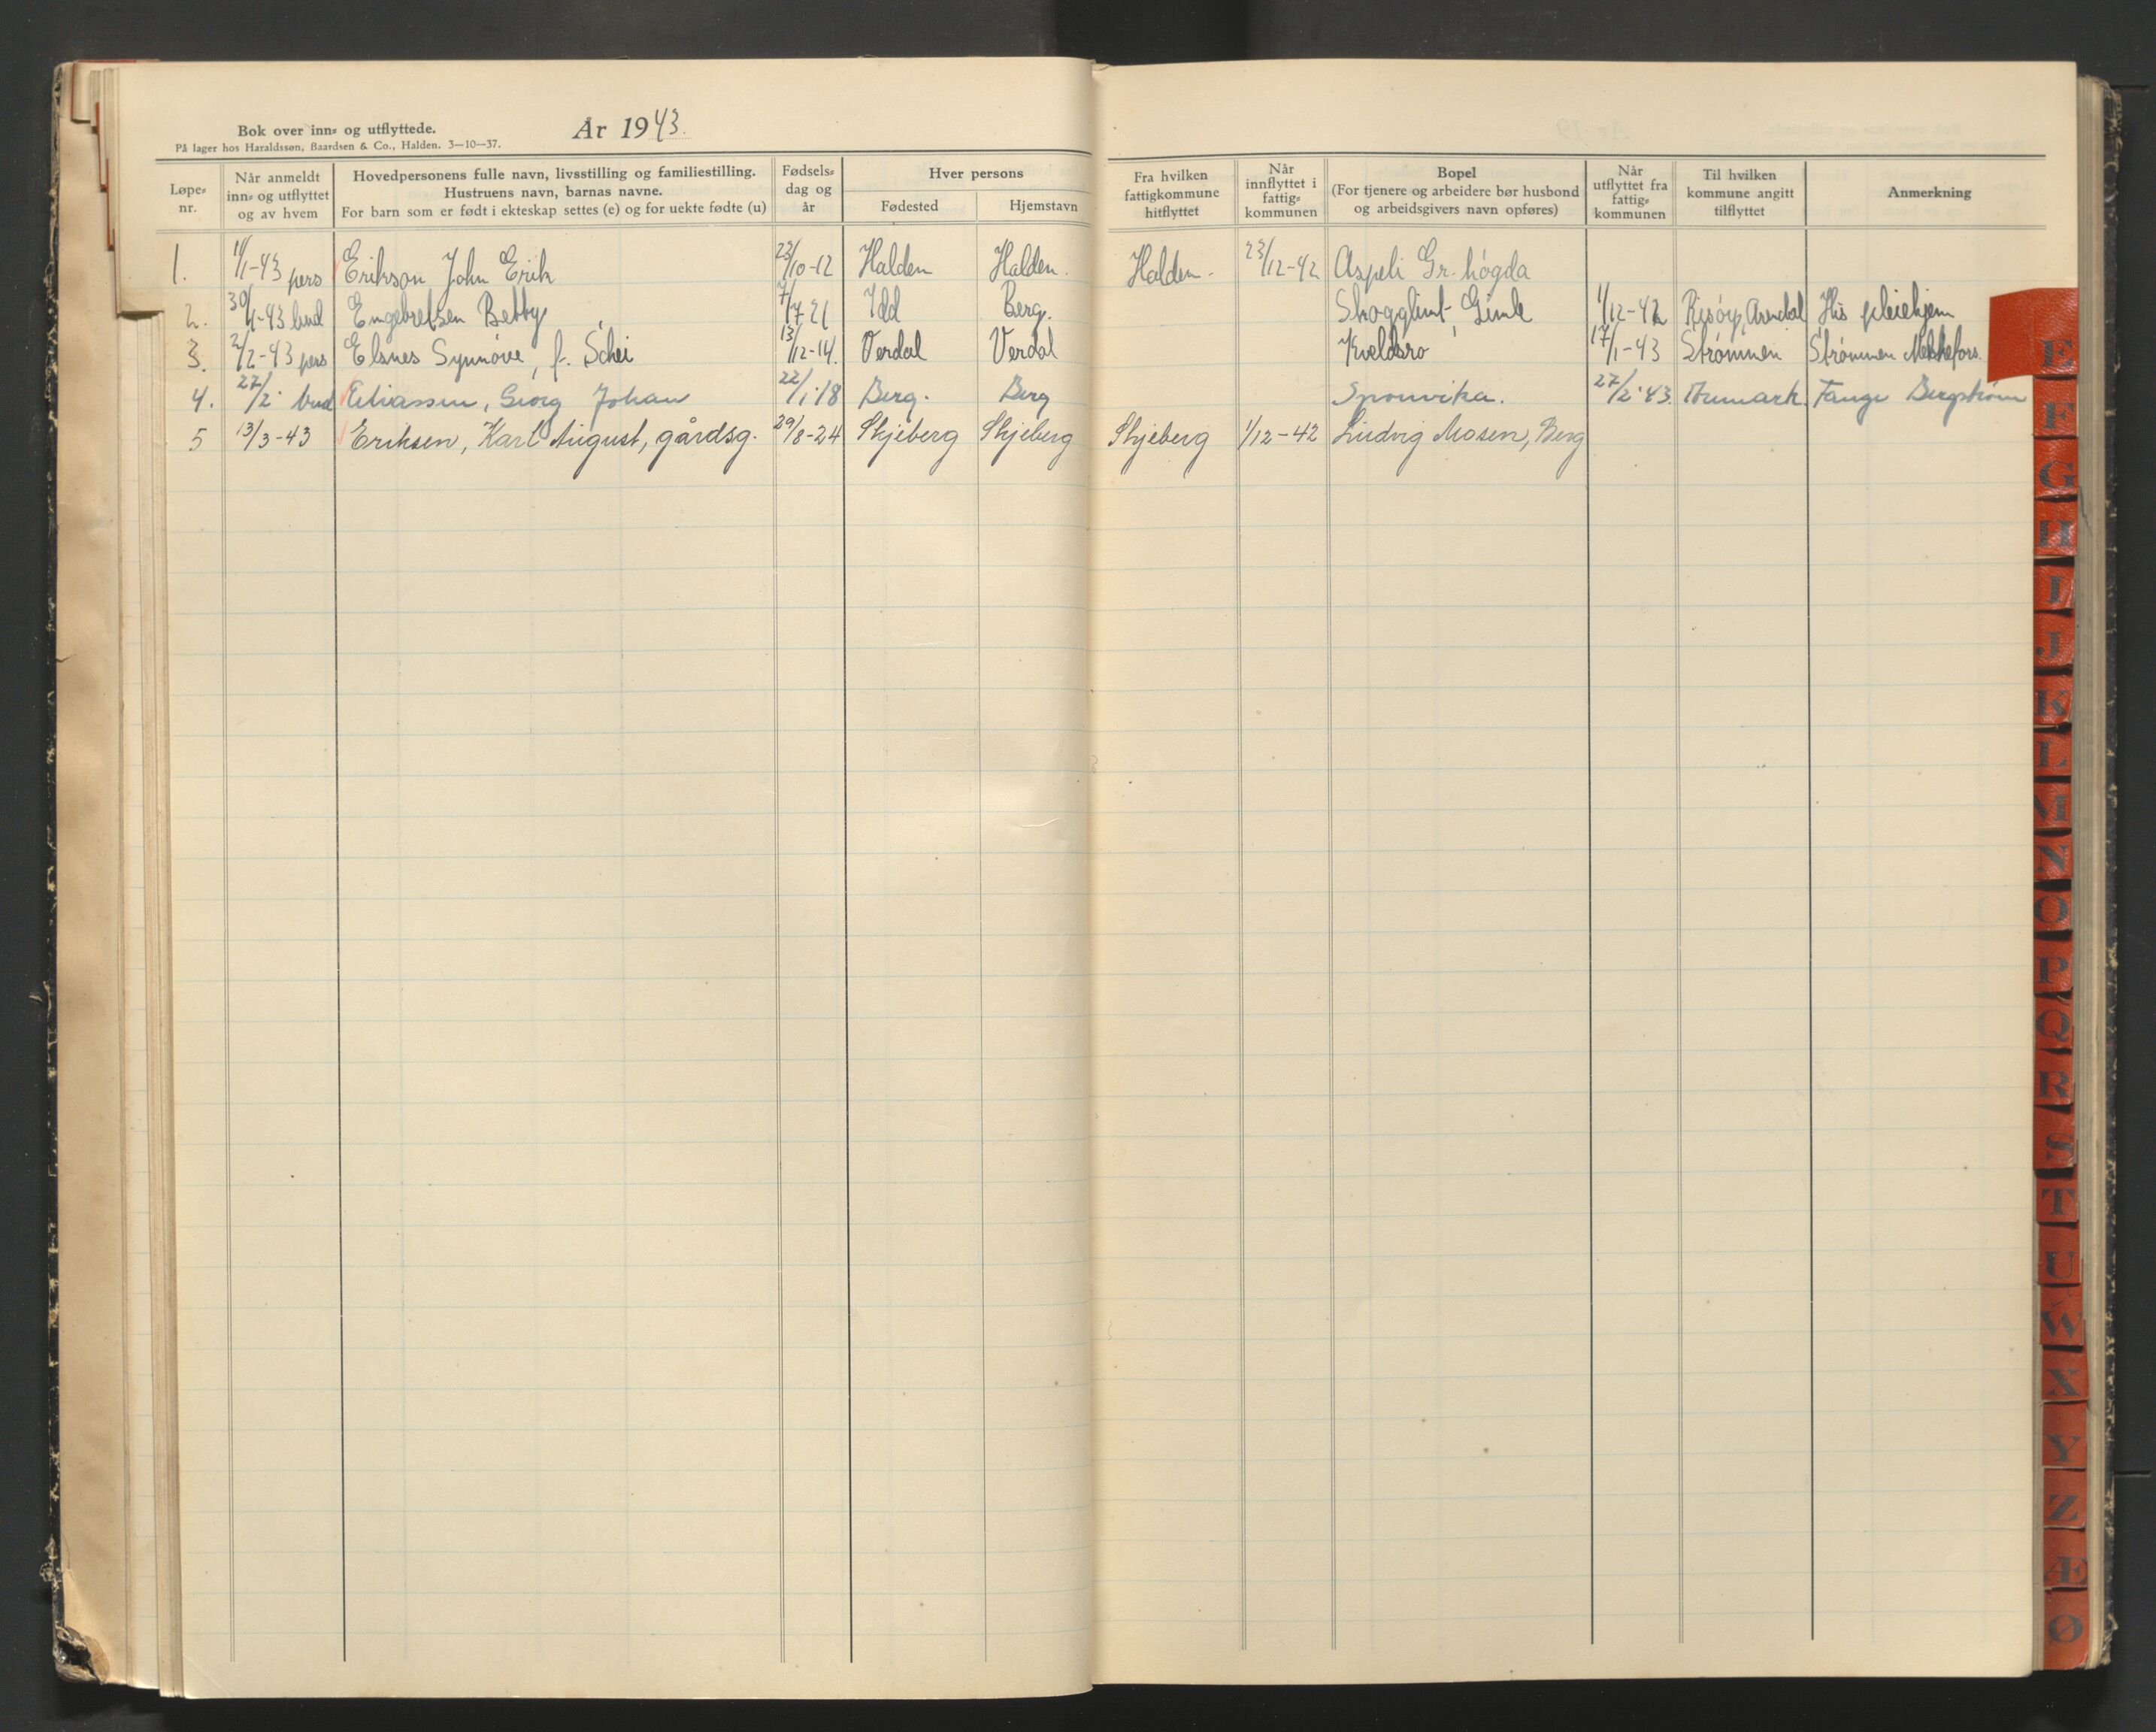 Bok over inn- og utflyttede.
På lager hos Haraldssøn, Baardsen & Co., Halden. 3—10—37.
År 1943.
Løpe-nr. | Når anmeldt inn- og utflyttet og av hvem | Hovedpersonens fulle navn, livsstilling og familiestilling. Hustruens navn, barnas navne. For barn som er født i ekteskap settes (e) og for uekte fødte (u) | Fødsels-dag og år | Hver persons Fødested | Hjemstavn | Fra hvilken fattigkommune hitflyttet | Når innflyttet i fattig-kommunen | Bopel (For tjenere og arbeidere bør husbond og arbeidsgivers navn opføres) | Når utflyttet fra fattig-kommunen | Til hvilken kommune angitt tilflyttet | Anmerkning
1. 11/1-43 pers Erikson John Erik 23/10-12 Halden Halden. Halden. 23/12-42 Aspeli Gr. høgda
2. 30/1-43 bud Engebretsen Betty 7/7 21 Idd Berg. Skogglimt, Gimle 1/12-42 Risøy, Arendal His pleiehjem
3. 2/2-43 pers Elsnes Synnøve, f. Schei 13/12-14. Verdal Verdal Kveldsro 17/1-43 Strømmen Strømmen
4. 27/2 bud Eliassen, Georg Johan 22/1.18 Berg. Berg Sponvika. 27/2.43. Aremark. Fange Bergstrøm
5 13/3-43 Eriksen, Karl August, gårdsg. 29/8-24 Skjeberg Skjeberg Skjeberg 1/12-42 Ludvig Mosen, Berg
E
F
G
H
I
J
K
L
M
N
O
P
Q
R
S
T
U
W
X
Y
Z
Æ
Ø